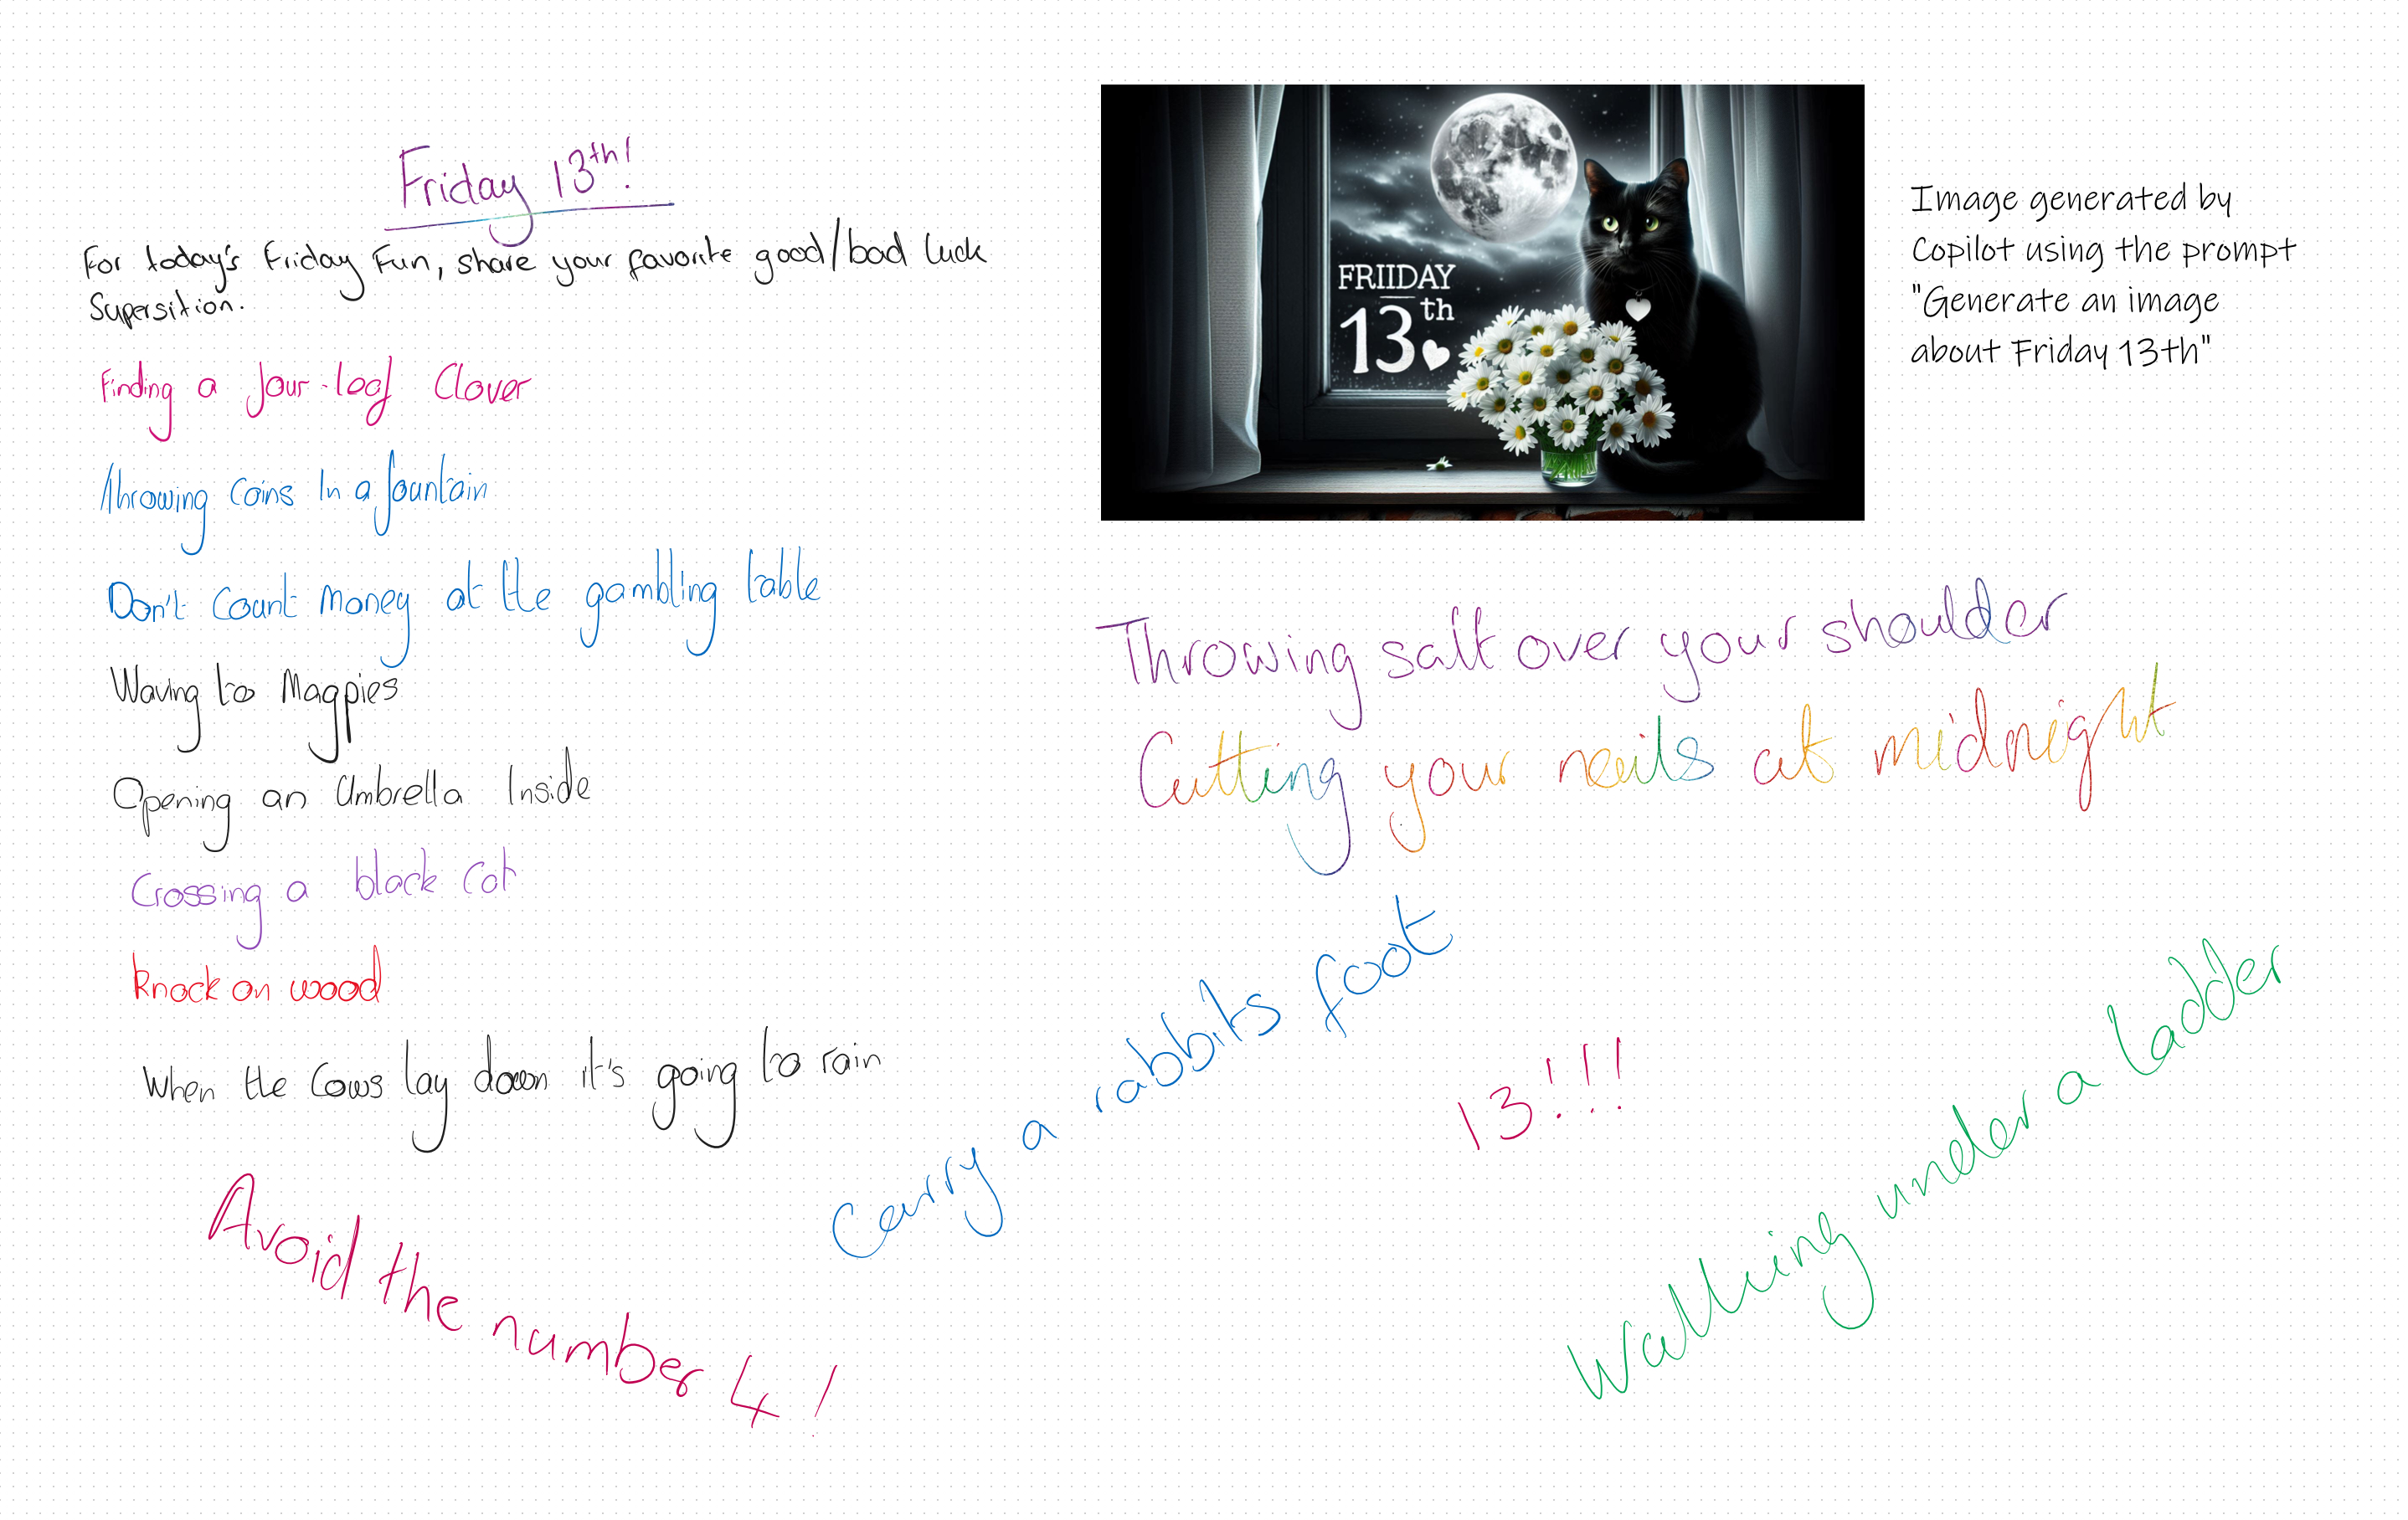 Friday 13th!
For today's Friday Fun, share your favorite good/bad luck
Supersition.
Finding a four-leaf Clover
Throwing Coins In a fountain
Don't Count Money at the gambling table
Waving to Magpies
Opening an Umbrella Inside
Crossing a black Cat
Knock on wood
When the Cows lay down it's going to rain
Avoid the number 4!
FRIIDAY
13th
Image generated by
Copilot using the prompt
"Generate an image
about Friday 13th"
Throwing salt over your shoulder
Cutting your nails at midnight
Carry a rabbits foot
13!!!
Walking under a ladder